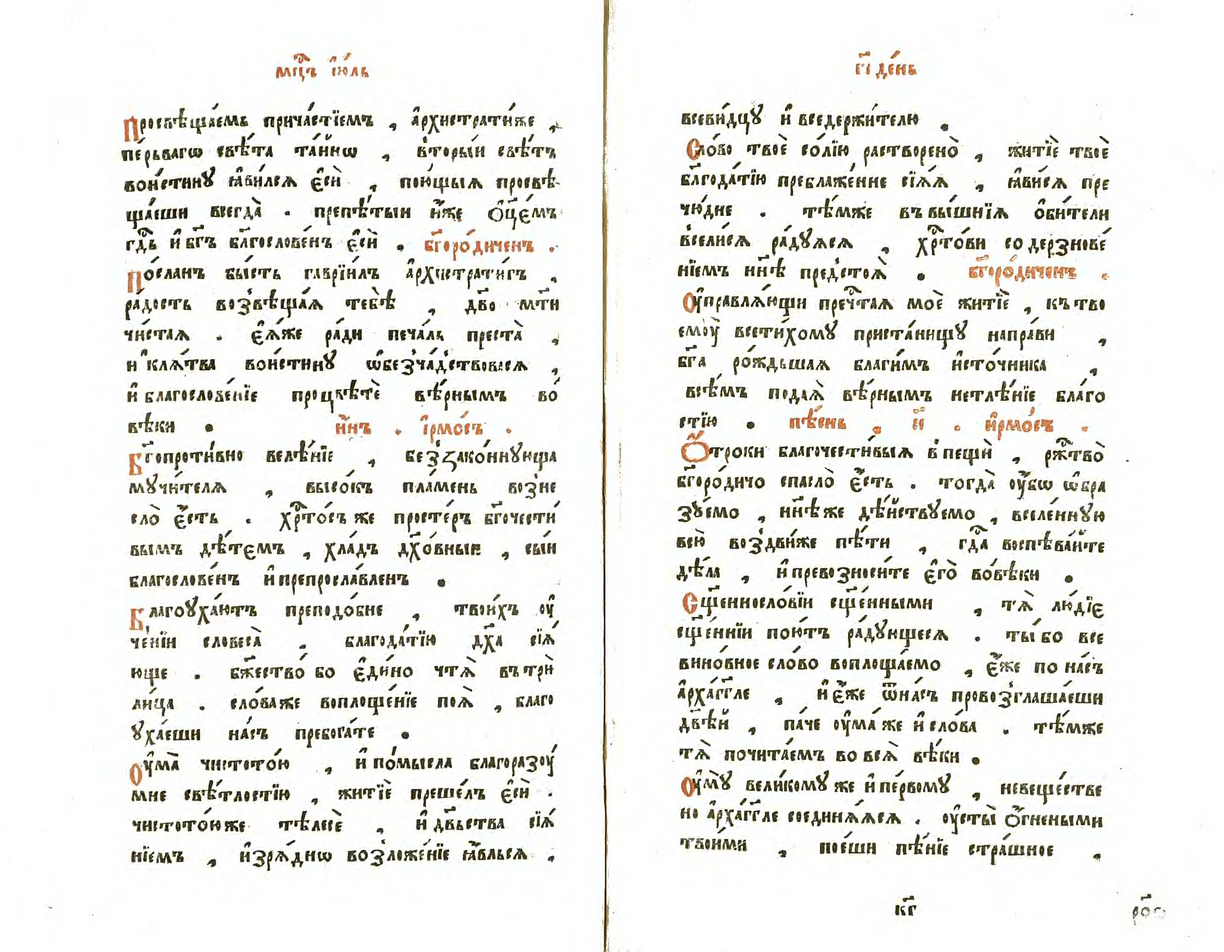 мц҃ъ і҆ю́ль
Просвѣща́емь прича́стїемъ , а҆рхистрати́же ,
пе́рьвагѡ свѣ́та та́йнѡ , вторы́й свѣ́тъ
вои́стинꙋ ꙗ҆ви́лсѧ є҆сѝ , пою́щыѧ просвѣ
ща́еши всегда̀ . препѣ́тыи и҆́же ѻ҆ц҃є́мъ
гд҇ь и҆ бг҃ъ бл҃гослове́нъ є҆сѝ . бг҃оро́диченъ .
По́сланъ бы́сть гаврїи́лъ а҆рхистрати́гъ ,
ра́дость возвѣща́ѧ тебѣ̀ , дв҃о мт҃и
чи́стаѧ . є҆ѧ́же ра́ди печа́ль преста̀ ,
и҆ клѧ́тва вои́стинꙋ ѡ҆безча́дствовасѧ ,
и҆ благослове́нїе процвѣ́те вѣ́рнымъ во
вѣ́ки .   и҆́нъ . і҆рмо́съ .
Бг҃опроти́вно велѣ́нїе , беззако́ннꙋюща
мꙋчи́телѧ , высо́къ пла́мень возне
сло̀ є҆́сть . хр҇то́съ же просте́ръ бг҃очести́
вымъ дѣ́тємъ , хла́дъ дх҃о́вныи , сы́и
благослове́нъ и҆ препросла́вленъ .
Благоꙋха́ютъ преподо́бне , твои́хъ оу҆
че́нїи словеса̀ . благода́тїю дх҃а сїѧ́
юще . бж҃ество́ бо є҆ди́но чтѧ̀ въ трѝ
ли́ца . сло́ва же воплоще́нїе поѧ̀ , благо
ꙋха́еши на́съ пребога́те .
Оу҆ма̀ чистото́ю , и҆ по́мысла благоразоу́
мне свѣ́тлостїю , житїѐ преше́лъ є҆сѝ .
чистото́ю же тѣ́лесѐ , и҆ дв҃ьства сїѧ́
нїемъ , и҆зрѧ́днѡ возложе́нїе ꙗ҆́вльсѧ .
є҃і де́нь
всеви́дцꙋ и҆ вседержи́телю .
Сло́во твоѐ со́лїю растворено̀ , житїѐ твоѐ
бл҃года́тїю преблаже́нне сїѧ́ѧ , ꙗ҆ви́сѧ пре
чю́дне . тѣ́мже въ вы́шнїѧ ѻ҆би́тели
всели́сѧ ра́дꙋѧсѧ , хр҇то́ви со дерзнове́
нїемъ нн҃ѣ предстоѧ̀ .   бг҃оро́диченъ .
Оу҆правлѧ́ющи преч҇таѧ моѐ житїѐ , къ тво
емоу̀ всети́хомꙋ приста́нищꙋ напра́ви ,
бг҃а ро́ждьшаѧ благи́мъ и҆сто́чника ,
всѣ́мъ подаѧ̀ вѣ́рнымъ нетлѣ́нїе бла́го
стїю .   пѣ́снь , и҃ . и҆рмо́съ .
Ѻ҆́троки благочести́выѧ в пещѝ , рж҇тво̀
бг҃оро́дичо спасло̀ є҆́сть . тогда̀ оу҆́бѡ ѡ҆бра
зꙋ́емо , нн҃ѣ же дѣ́йствꙋемо , вселе́ннꙋю
всю̀ воздви́же пѣ́ти , гд҇а воспѣва́йте
дѣ́ла , и҆ превозноси́те є҆го̀ во вѣ́ки .
Сщ҃еннослові́и сщ҃е́нными , тѧ̀ лю́дїє
сщ҃е́ннїи пою́тъ ра́дꙋющесѧ . ты́ бо все
вино́вное сло́во воплоща́емо , є҆́же по на́съ
а҆рха́гг҃ле , и҆ є҆́же ѿ на́съ провозглаша́еши
дв҃ѣ́й , па́че оу҆ма́ же и҆ сло́ва . тѣ́мже
тѧ̀ почита́емъ во всѧ̀ вѣ́ки .
Оу҆мꙋ̀ вели́комꙋ же и҆ пе́рвомꙋ , невеще́стве
но а҆рха́гг҃ле соединѧ́ѧсѧ . оу҆сты̀ ѻ҆́гнеными
твои́ми , пое́ши пѣ́нїе стра́шное ,
кг҃